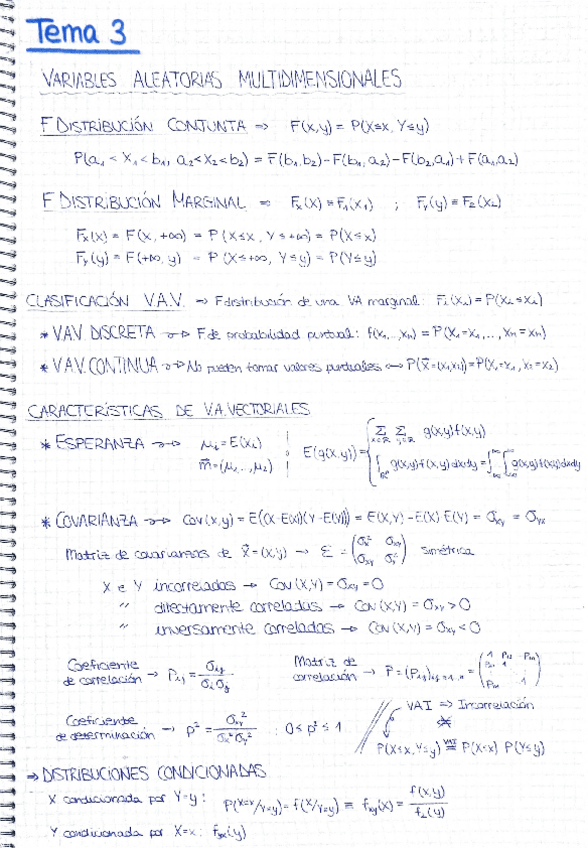 Tema 3
VARIABLES ALEATORIAS MULTIDIMENSIONALES
F DISTRIBUCIÓN CONJUNTA ⇒ F(x,y) = P(X≤x, Y≤y)
P(a₁ < X₁ < b₁, a₂ < X₂ < b₂) = F(b₁,b₂) - F(b₁,a₂) - F(b₂,a₁) + F(a₁,a₂)
F DISTRIBUCIÓN MARGINAL ⇒ Fₓ(X) ≡ F₁(x₁) ; Fᵧ(y) ≡ F₂(x₂)
Fₓ(x) = F(x,+∞) = P(X≤x, Y≤+∞) = P(X≤x)
Fᵧ(y) = F(+∞,y) = P(X≤+∞, Y≤y) = P(Y≤y)
CLASIFICACIÓN V.A.V. → F distribución de una VA marginal: Fᵢ(xᵢ) = P(Xᵢ≤xᵢ)
* V.A.V. DISCRETA → F de probabilidad puntual: f(x₁,...,xₙ) = P(X₁=x₁,...,Xₙ=xₙ)
* V.A.V. CONTINUA → No pueden tomar valores puntuales → P(X⃗=(x₁,x₂)) = P(X₁=x₁, X₂=x₂)
CARACTERÍSTICAS DE V.A. VECTORIALES
* ESPERANZA → μᵢ = E(Xᵢ)
m⃗ = (μ₁...,μ₂)
E(g(x,y)) = { Σ Σ g(x,y)f(x,y)
∫ g(x,y)f(x,y)dxdy = ∫∫ g(x,y)f(x,y)dxdy
* COVARIANZA → Cov(x,y) = E((X-E(X))(Y-E(Y))) = E(X,Y) - E(X)E(Y) = σₓᵧ = σᵧₓ
Matriz de covarianzas de X⃗=(X,Y) → Σ = (σₓ² σₓᵧ / σₓᵧ σᵧ²) Simétrica
X e Y incorreladas → Cov(X,Y) = σₓᵧ = 0
" directamente correladas → Cov(X,Y) = σₓᵧ > 0
" inversamente correladas → Cov(X,Y) = σₓᵧ < 0
Coeficiente de correlación → ρᵢⱼ = σᵢⱼ / σᵢσⱼ
Matriz de correlación → P = (ρᵢⱼ)ᵢ,ⱼ₌₁..ₙ = (1 ρ₁₂ ρ₁ₙ / ρ₂₁ 1 / ρₙ₁ 1)
Coeficiente de determinación → ρ² = σₓᵧ² / σₓ²σᵧ² ; 0≤ρ²≤1
VAI ⇒ Incorrelación
P(X≤x, Y≤y) =(VAI) P(X≤x) P(Y≤y)
→ DISTRIBUCIONES CONDICIONADAS
X condicionada por Y=y: P(X=x/Y=y) = f(X/Y=y) ≡ fₓ|ᵧ(x) = f(x,y) / f₂(y)
Y condicionada por X=x: fᵧ|ₓ(y)